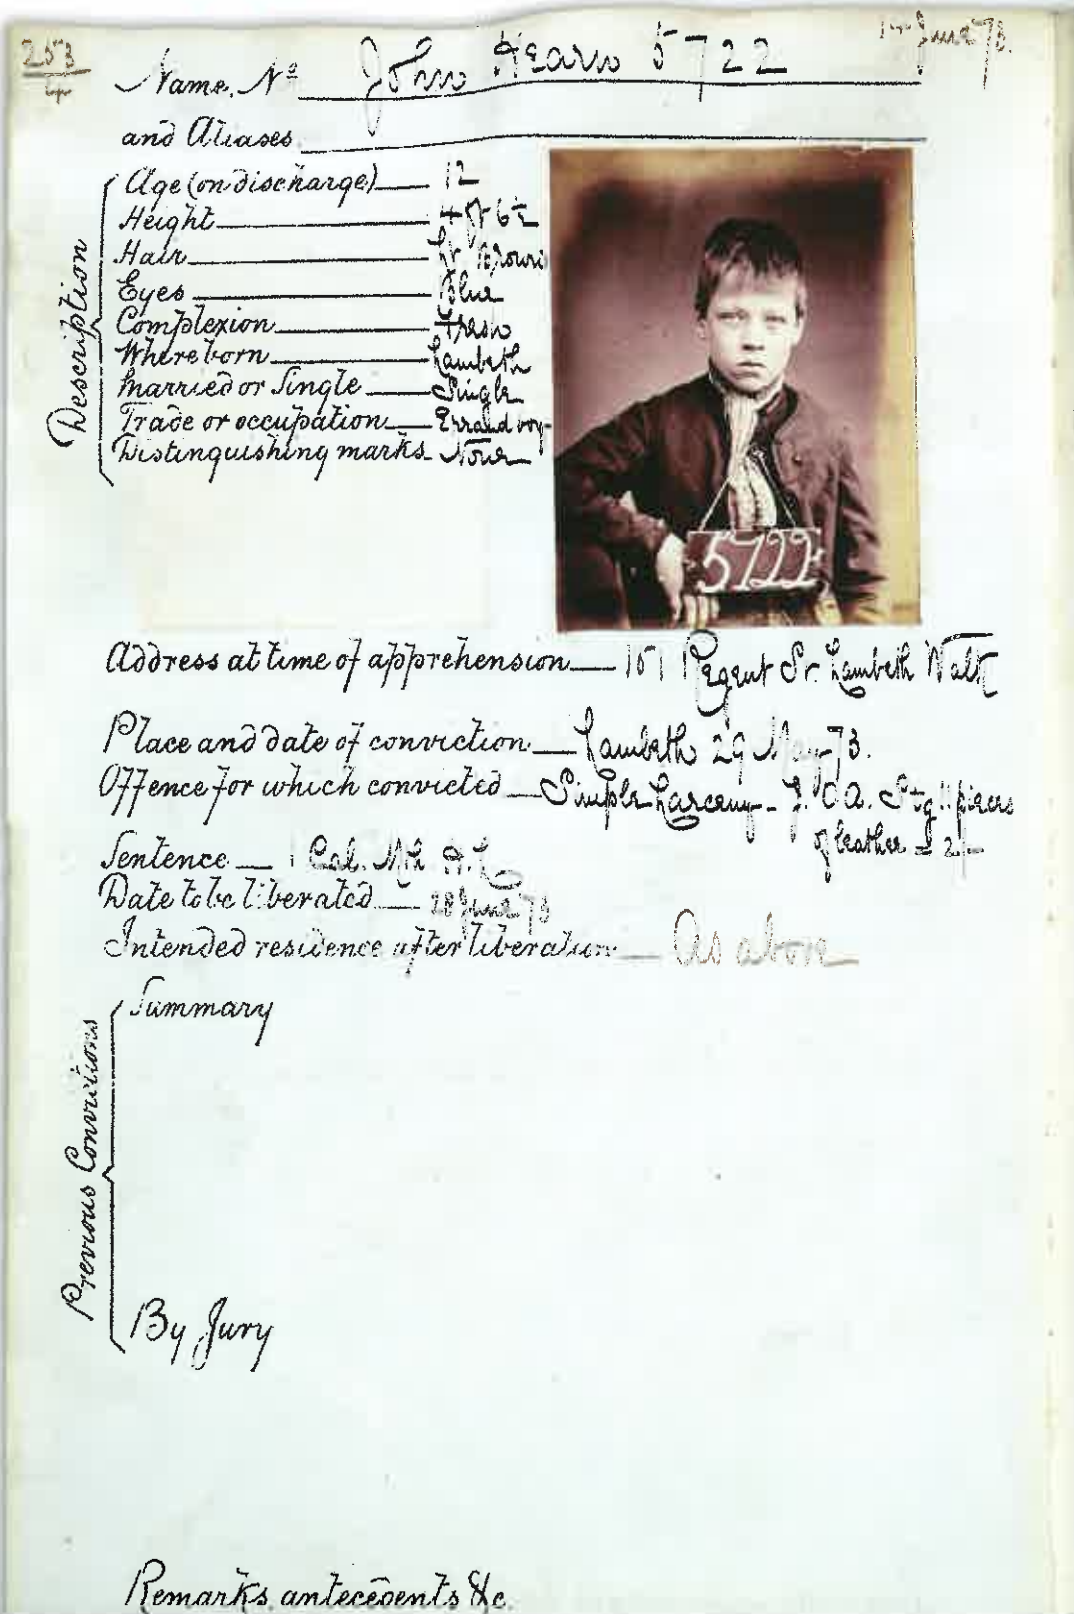 253
14 June 73.
Name, No John Hearn 5722
and Aliases
Description
Age (on discharge) 12
Height 4 ft 6½
Hair Lt. Brown
Eyes Blue
Complexion Fresh
Where born Lambeth
Married or Single Single
Trade or occupation Errand boy
Distinguishing marks None
5722
Address at time of apprehension 151 Regent St. Lambeth Walk
Place and date of conviction Lambeth 29 May 73.
Offence for which convicted Simple Larceny - J.O.A. Stg 11 pieces
of leather = 2/-
Sentence 1 Cal. Mth H.L
Date to be liberated 28 June 73
Intended residence after liberation As above
Previous Convictions
Summary
By Jury
Remarks, antecedents &c.